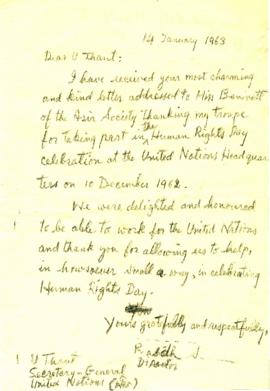 14 January 1963
Dear U Thant:
I have received your most charming
and kind letter addressed to Miss Bennett
of the Asia Society thanking my troupe
for taking part in the Human Rights Day
celebration at the United Nations Headquar
ters on 10 December 1962.
We were delighted and honoured
to be able to work for the United Nations
and thank you for allowing us to help,
in howsoever small a way, in celebrating
Human Rights Day.
Yours gratefully and respectfully,
Director
U Thant
Secretary-General
United Nations